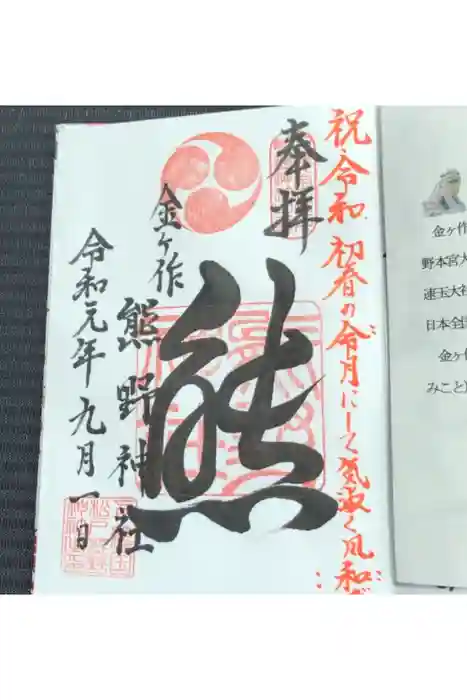 祝・令和 初春の令月にして気淑く風和
奉拝
熊
金ヶ作
熊野神社
令和元年九月一日
金ヶ作
野本宮大
速玉大社
日本全国
金ヶ作
みこと